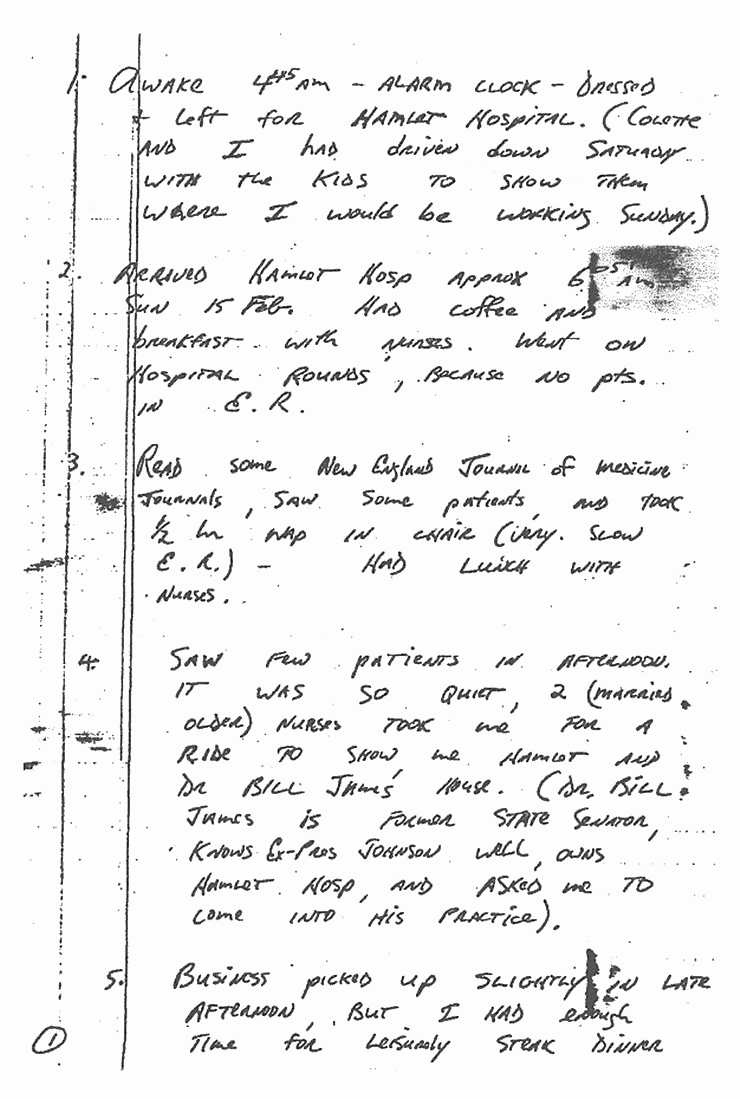 1. Awake 4 45 am - Alarm clock - Dressed
+ left for Hamlet Hospital. (Colette
and I had driven down Saturday
with the kids to show them
where I would be working Sunday.)
2. Arraved Hamlet Hosp approx 6 05 am
Sun 15 Feb. Had coffee and
breakfast with nurses. Went on
Hospital Rounds, because no pts.
in E.R.
3. Read some New England Journal of medicine
Journals, saw some patients, and took
1/2 hr nap in chair (very slow
E.R.) - Had lunch with
Nurses.
4. Saw few patients in afternoon.
It was so quiet, 2 (married
older) nurses took me for a
ride to show me Hamlet and
Dr Bill James House. (Dr. Bill
James is former State Senator,
knows Ex-Pres Johnson well, owns
Hamlet Hosp, and asked me to
come into his practice).
5. Business picked up slightly in late
afternoon, but I had enough
time for leisurely steak dinner
1